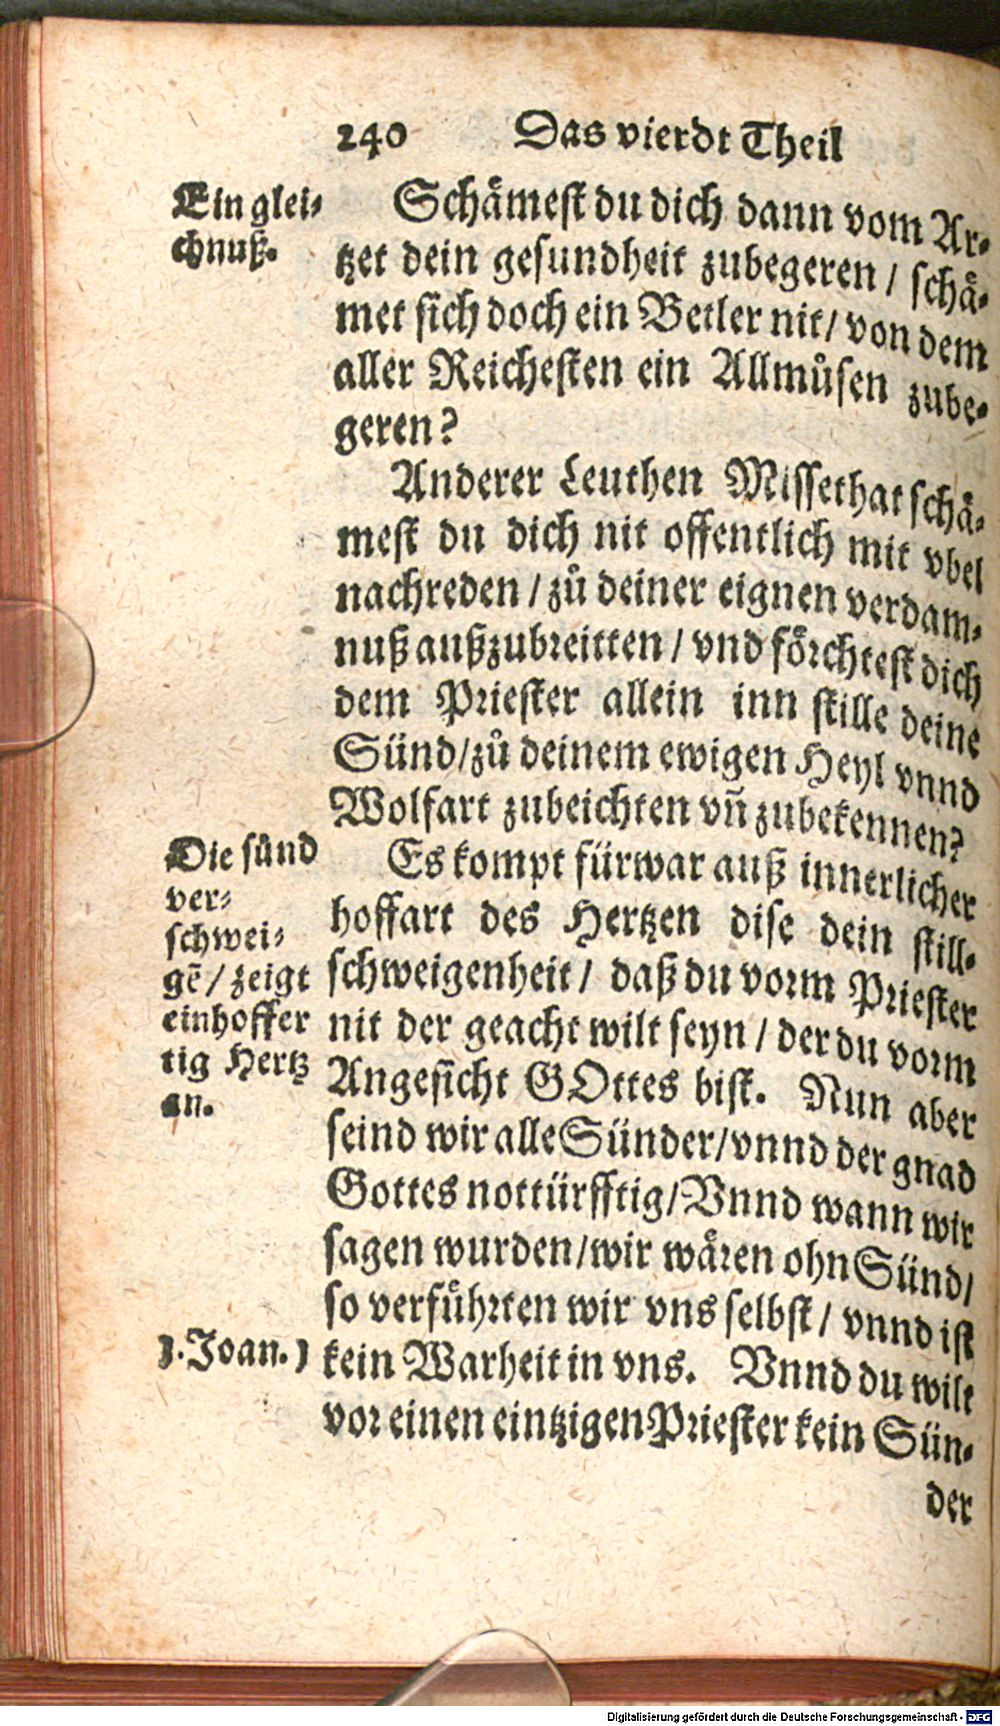 240 Das vierdt Theil
Ein glei⸗
chnuß.
Schämest du dich dann vom Ar⸗
tzet dein gesundheit zubegeren / schä⸗
met sich doch ein Betler nit / von dem
aller Reichesten ein Allmůsen zube⸗
geren?
Anderer Leuthen Missethat schä⸗
mest du dich nit offentlich mit vbel
nachreden / zů deiner eignen verdam⸗
nuß außzubreitten / vnd förchtest dich
dem Priester allein inn stille deine
Sünd / zů deinem ewigen Heyl vnnd
Wolfart zubeichten vñ zubekennen?
Die sünd
ver⸗
schwei⸗
gẽ / zeigt
ein hoffer
tig Hertz
an.
Es kompt fürwar auß innerlicher
hoffart des Hertzen dise dein still⸗
schweigenheit / daß du vorm Priester
nit der geacht wilt seyn / der du vorm
Angesicht GOttes bist. Nun aber
seind wir alle Sünder / vnnd der gnad
Gottes nottürfftig / Vnnd wann wir
sagen wurden / wir wären ohn Sünd /
so verführten wir vns selbst / vnnd ist
1. Joan. 1
kein Warheit in vns. Vnnd du wilt
vor einen eintzigen Priester kein Sün⸗
der
Digitalisierung gefördert durch die Deutsche Forschungsgemeinschaft - DFG